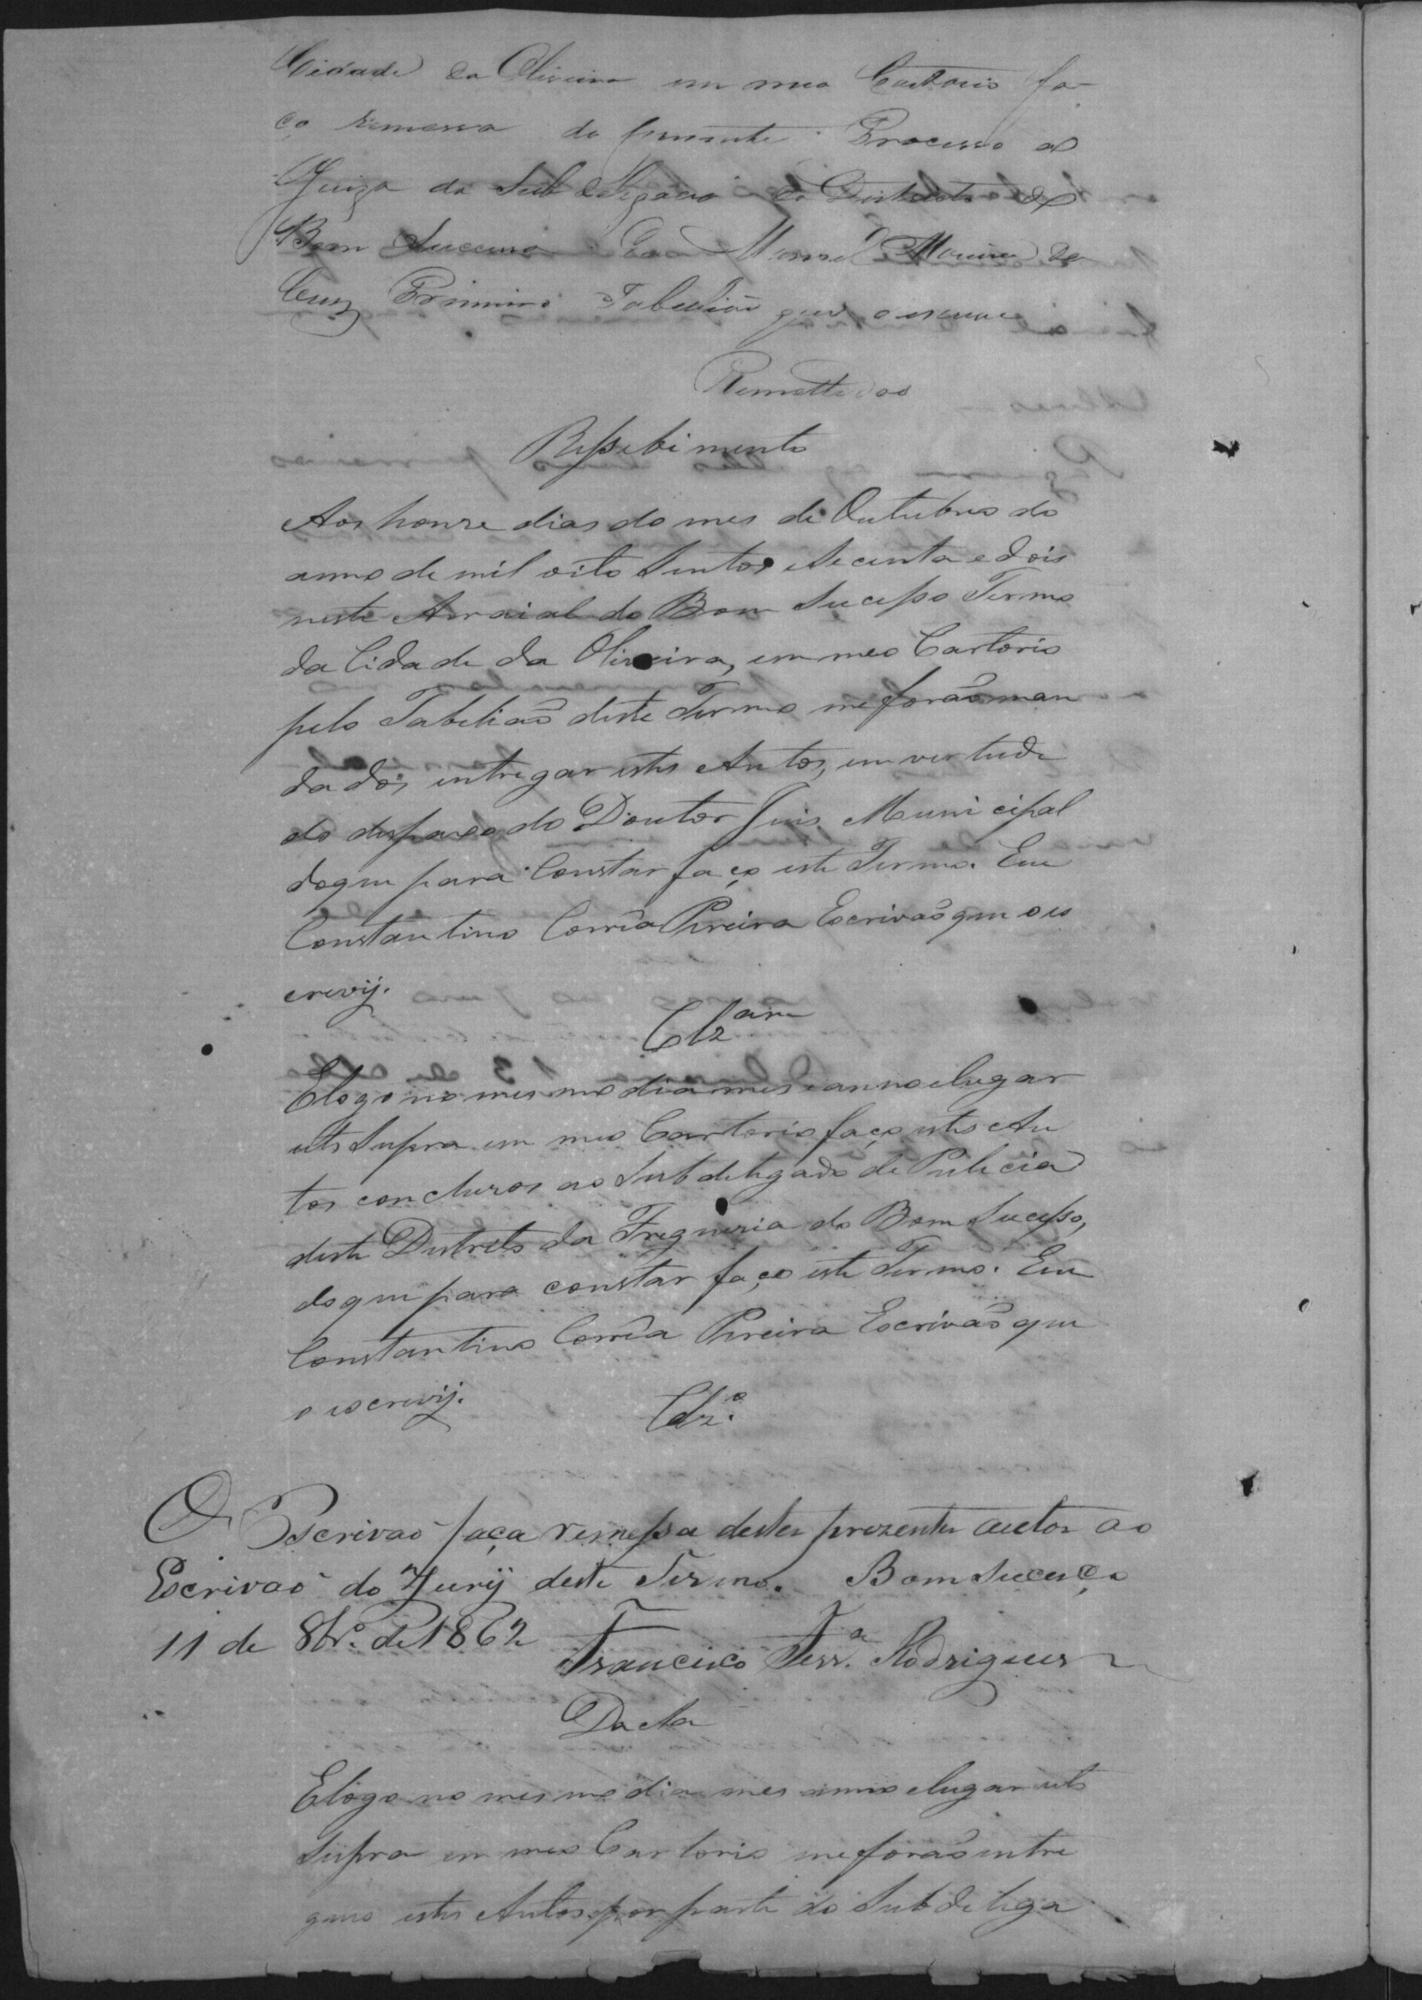 Cidade da Oliveira em meo Cartorio fa-
ço remessa do presente Processo ao
Juizo da Sub delegacia do Districto do
Bom Sucesso Eu Manoel Moreira da
Cruz Primeiro Tabelião que o escrevi
Remettidos
Ressebimento
Aos honze dias do mes de Outubro do
anno de mil oito Sentos e Secenta e dois
neste Arraial do Bom Sucesso Termo
da Cidade da Oliveira, em meo Cartorio
pelo Tabelião deste Termo me forão man
dados entregar estes Autos, em vertude
do despaxo do Doutor Juis Municipal
do que para Constar faço este Termo. Eu
Constantino Corrêa Pereira Escrivão que o es
crevÿ.
Clz am
E logo no mesmo dia mes e anno e lugar
uts Supra em meo Cartorio faço estes Au
tos concluzos ao Subdelegado de Pulicia
deste Distrito da Freguezia do Bom Sucesso,
do que para constar faço este Termo. Eu
Constantino Corrêa Pereira Escrivão que
o escrevÿ.
Clz.º
O Escrivaõ faça remessa destes prezentes autos ao
Escrivaõ do Jurÿ deste Termo. Bom Sucesço
11 de 8br.º de 1862
Francisco Ferr.ª Rodrigues
Dacta
E logo no mesmo dia mes anno e lugar uts
Supra em meo Cartorio me forão entre
gues estes Autos por parte do Subdelega